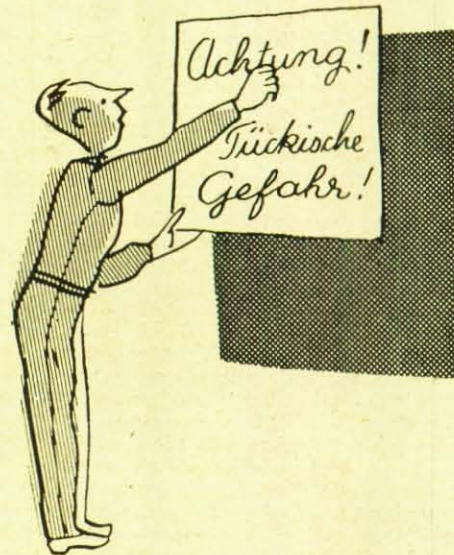 Achtung!
Tückische
Gefahr!